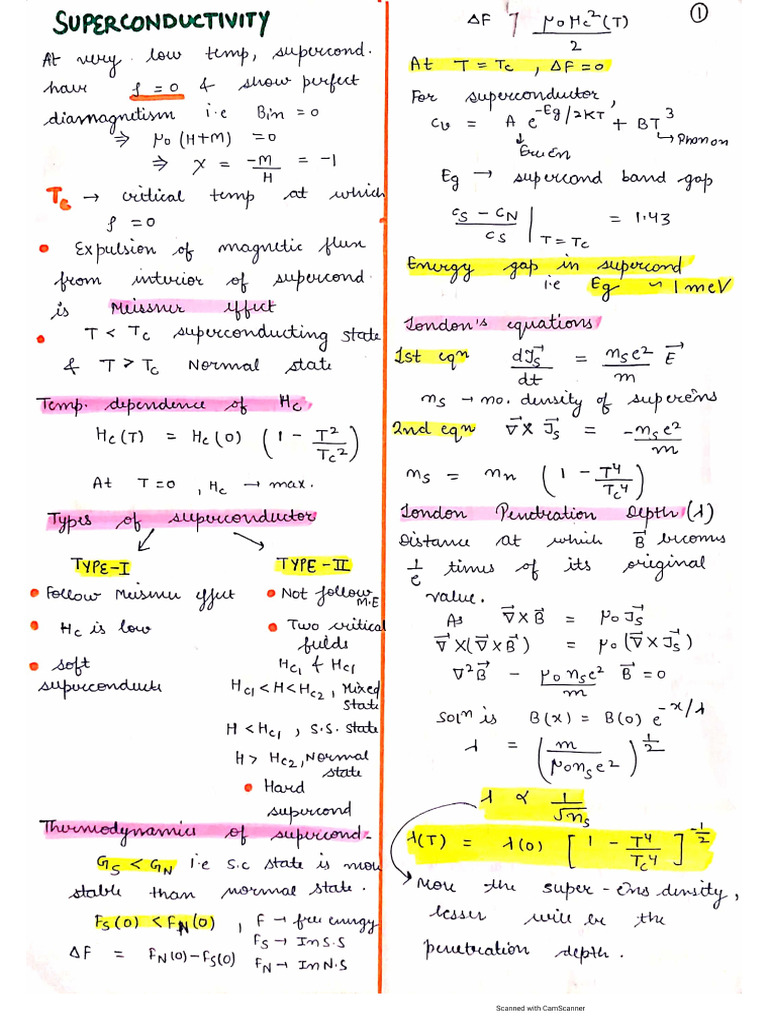 SUPERCONDUCTIVITY
At very low temp, supercond.
have ρ = 0 & show perfect
diamagnetism i.e Bin = 0
⇒ μ0 (H+M) = 0
⇒ χ = -M/H = -1
Tc → critical temp at which
ρ = 0
• Expulsion of magnetic flux
from interior of supercond.
is Meissner effect
• T < Tc superconducting state
& T > Tc Normal state
Temp. dependence of Hc
Hc(T) = Hc(0) (1 - T²/Tc²)
At T=0, Hc → max.
Types of superconductor
TYPE-I
• Follow Meisner effect
• Hc is low
• soft
superconducts
TYPE-II
• Not follow
M.E
• Two critical
fields
Hc1 & Hc1
Hc1 < H < Hc2, Mixed
state
H < Hc1, S.S. state
H > Hc2, Normal
state
• Hard
supercond
Thermodynamics of supercond-
GS < GN i.e s.c state is more
stable than normal state.
FS(0) < FN(0), F → free energy
FS → In S.S
ΔF = FN(0) - FS(0) FN → In N.S
①
ΔF = μ0Hc²(T)/2
At T = Tc, ΔF = 0
For superconductor,
Cv = A e^-Eg/2KT + BT³
↓ → Phonon
Eg → supercond band gap
CS - CN/CS | T = Tc = 1.43
Energy gap in supercond
i.e Eg ~ 1 meV
London's equations
1st eqn dJs/dt = nse²/m E
ns → no. density of superens
2nd eqn ∇ × Js = -nse²/m
ns = nn (1 - T⁴/Tc⁴)
London Penetration Depth (λ)
Distance at which B becomes
1/e times of its original
value.
As ∇ × B = μ0Js
∇ × (∇ × B) = μ0 (∇ × Js)
∇²B - μ0nse²/m B = 0
Solⁿ is B(x) = B(0) e^-x/λ
λ = (m/μ0nse²)^1/2
λ ∝ 1/√ns
λ(T) = λ(0) [1 - T⁴/Tc⁴]^-1/2
→ More the super-ens density,
lesser will be the
penetration depth.
Scanned with CamScanner